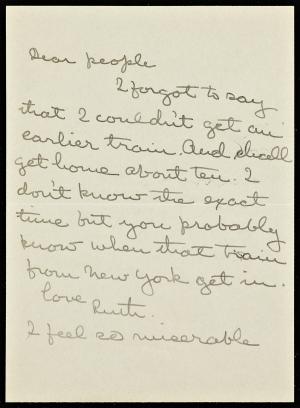 Dear people
I forgot to say
that I couldn't get an
earlier train. And shall
get home about ten. I
don't know the exact
time but you probably
know when that train
from New York get in.
Love
Ruth.
I feel so miserable